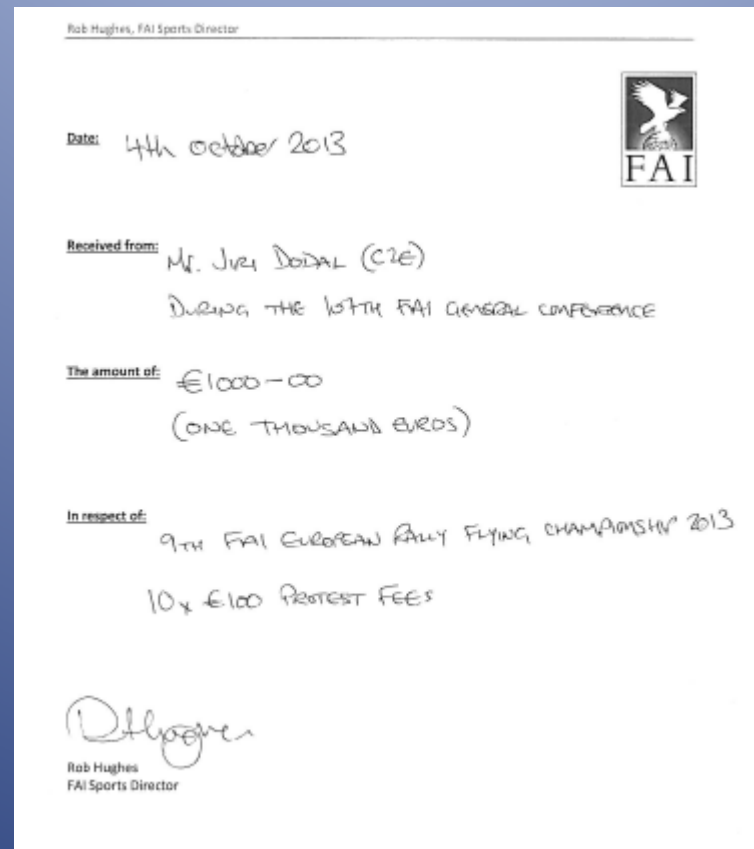 Rob Hughes, FAI Sports Director
FAI
Date: 4th October 2013
Received from: Mr. Jiri Dodal (CZE)
During the 107th FAI General Conference
The amount of: €1000-00
(One Thousand Euros)
In respect of:
9th FAI European Rally Flying Championship 2013
10x €100 Protest Fees
Rob Hughes
FAI Sports Director